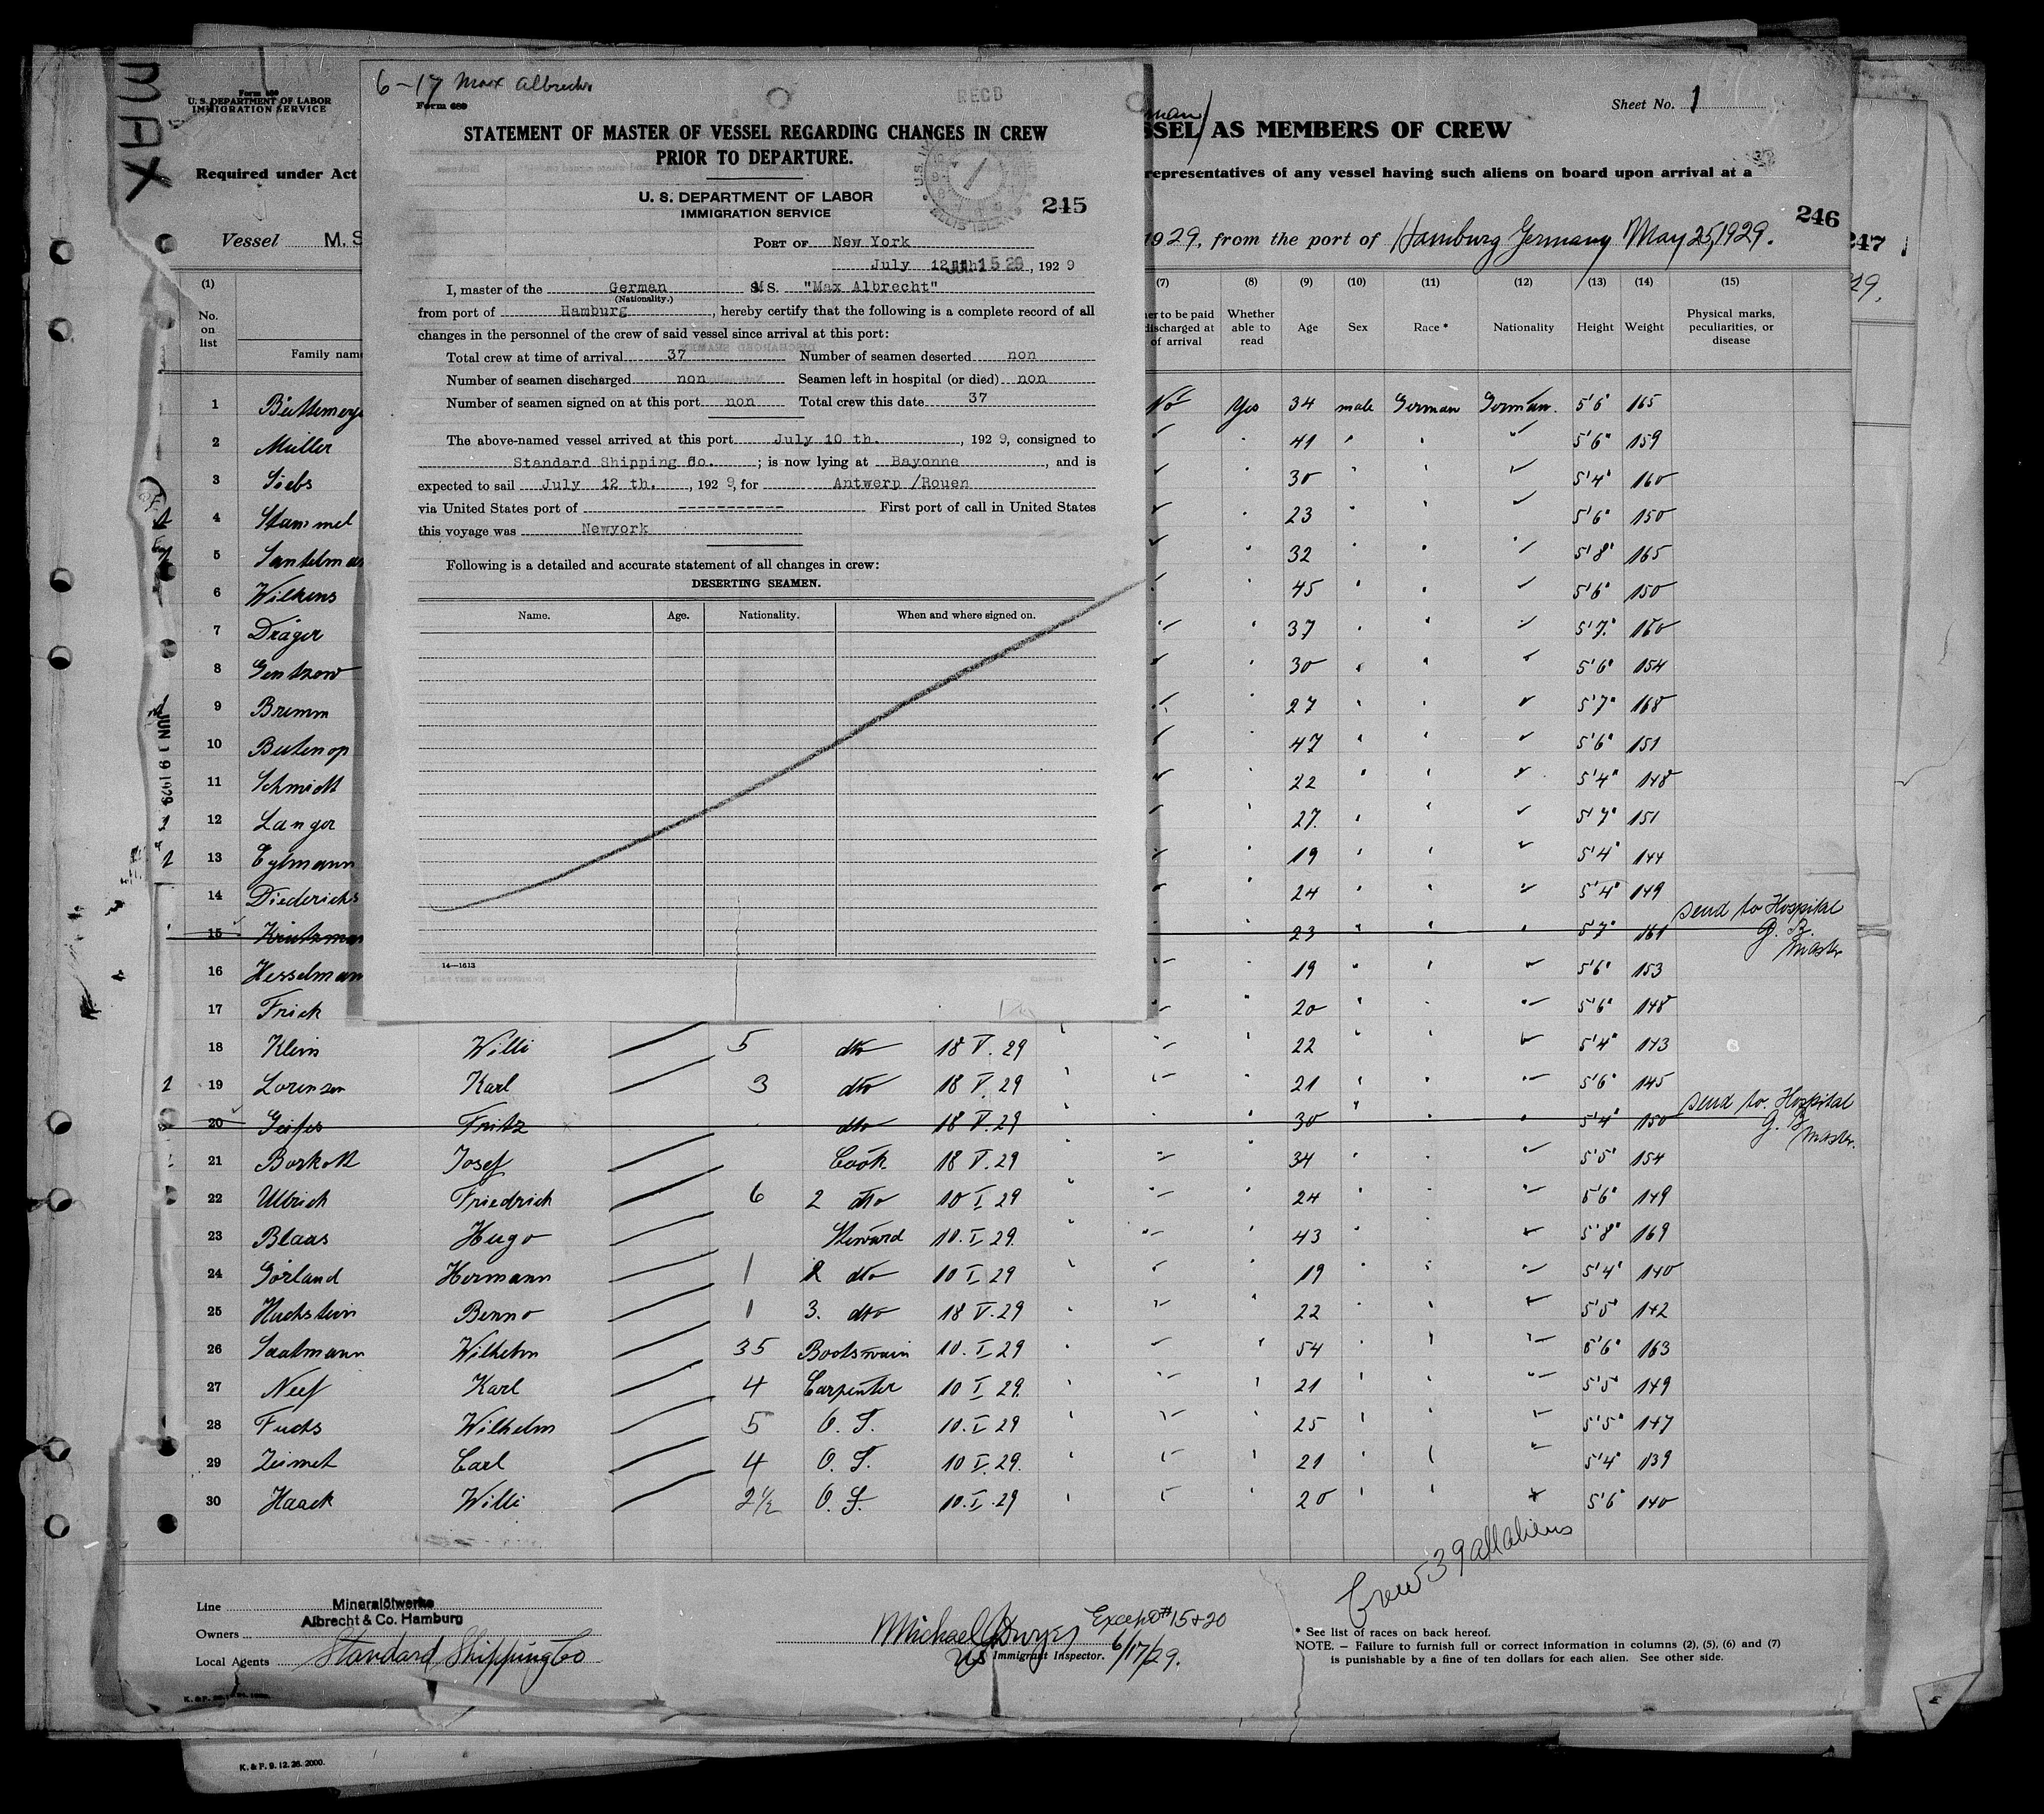 MAX
Form 680
U. S. DEPARTMENT OF LABOR
IMMIGRATION SERVICE
Required under Act
Vessel M. S
6-17 Max Albrecht
Form 689
RECD
STATEMENT OF MASTER OF VESSEL REGARDING CHANGES IN CREW
PRIOR TO DEPARTURE.
U. S. DEPARTMENT OF LABOR
IMMIGRATION SERVICE
245
PORT OF New York
July 12th 15 29, 1929
I, master of the German MS. "Max Albrecht"
(Nationality.)
from port of Hamburg, hereby certify that the following is a complete record of all
changes in the personnel of the crew of said vessel since arrival at this port:
Total crew at time of arrival 37 Number of seamen deserted non
Number of seamen discharged non Seamen left in hospital (or died) non
Number of seamen signed on at this port non Total crew this date 37
The above-named vessel arrived at this port July 10 th., 1929, consigned to
Standard Shipping Co. ; is now lying at Bayonne, and is
expected to sail July 12 th., 1929, for Antwerp /Rouen
via United States port of ----------- First port of call in United States
this voyage was Newyork
Following is a detailed and accurate statement of all changes in crew:
DESERTING SEAMEN.
Name. Age. Nationality. When and where signed on.
14—1613
Sheet No. 1
SSEL AS MEMBERS OF CREW
representatives of any vessel having such aliens on board upon arrival at a
246
1929, from the port of Hamburg Germany May 25, 1929.
247
29,
(1) (7) (8) (9) (10) (11) (12) (13) (14) (15)
No. on list
Family name
er to be paid
discharged at
of arrival
Whether able to read
Age Sex Race * Nationality Height Weight
Physical marks, peculiarities, or disease
1 No Yes 34 male German German. 5'6" 165
2 Müller 41 5'6" 159
3 Siebs 30 5'4" 160
4 Stammel 23 5'6" 150
5 Santelman 32 5'8" 165
6 Wilkens 45 5'6" 150
7 Dräger 37 5'7" 160
8 Gentzow 30 5'6" 154
9 Bremm 27 5'7" 168
10 Butenop 47 5'6" 151
11 Schmidt 22 5'4" 148
12 Langer 27. 5'7" 151
13 Eylmann 19 5'4" 144
14 Diederichs 24 5'4" 149
15 23 5'7" 161 send to Hospital
G. B.
Master
16 Hesselman 19 5'6" 153
17 Frick 20 5'6" 148
18 Klein Willi 5 dto 18 V. 29 22 5'4" 143
19 Lorenzen Karl 3 dto 18 V. 29 21 5'6" 145
20 Fritz dto 18 V. 29 30 5'4" 150 send to Hospital
G. B.
Master.
21 Borkott Josef Cook 18 V. 29 34 5'5" 154
22 Ullrich Friedrich 6 2 dto 10 I 29 24 5'6" 149
23 Blaas Hugo Steward 10. I 29. 43 5'8" 169
24 Görland Hermann 1 2 dto 10 I 29 19 5'4" 140
25 Huchstein Benno 1 3. dto 18 V. 29 22 5'5" 142
26 Saatmann Wilhelm 35 Bootswain 10. I 29 54 5'6" 163
27 Neef Karl 4 Carpenter 10 I 29. 21 5'5" 149
28 Fuchs Wilhelm 5 O. S. 10. I 29 25 5'5" 147
29 Zeimet Carl 4 O. S. 10 I. 29. 21 5'4" 139
30 Haack Willi 2½ O. S. 10. I. 29 20 5'6" 140
JUN 19 1929
Crew 39 all aliens
Line Mineralölwerke
Albrecht & Co. Hamburg
Owners
Local Agents Standard Shipping Co
Michael Dwyer Except # 15 & 20
US Immigrant Inspector. 6/17/29.
* See list of races on back hereof.
NOTE. — Failure to furnish full or correct information in columns (2), (5), (6) and (7)
is punishable by a fine of ten dollars for each alien. See other side.
K. & P. 9. 12. 28. 2000.